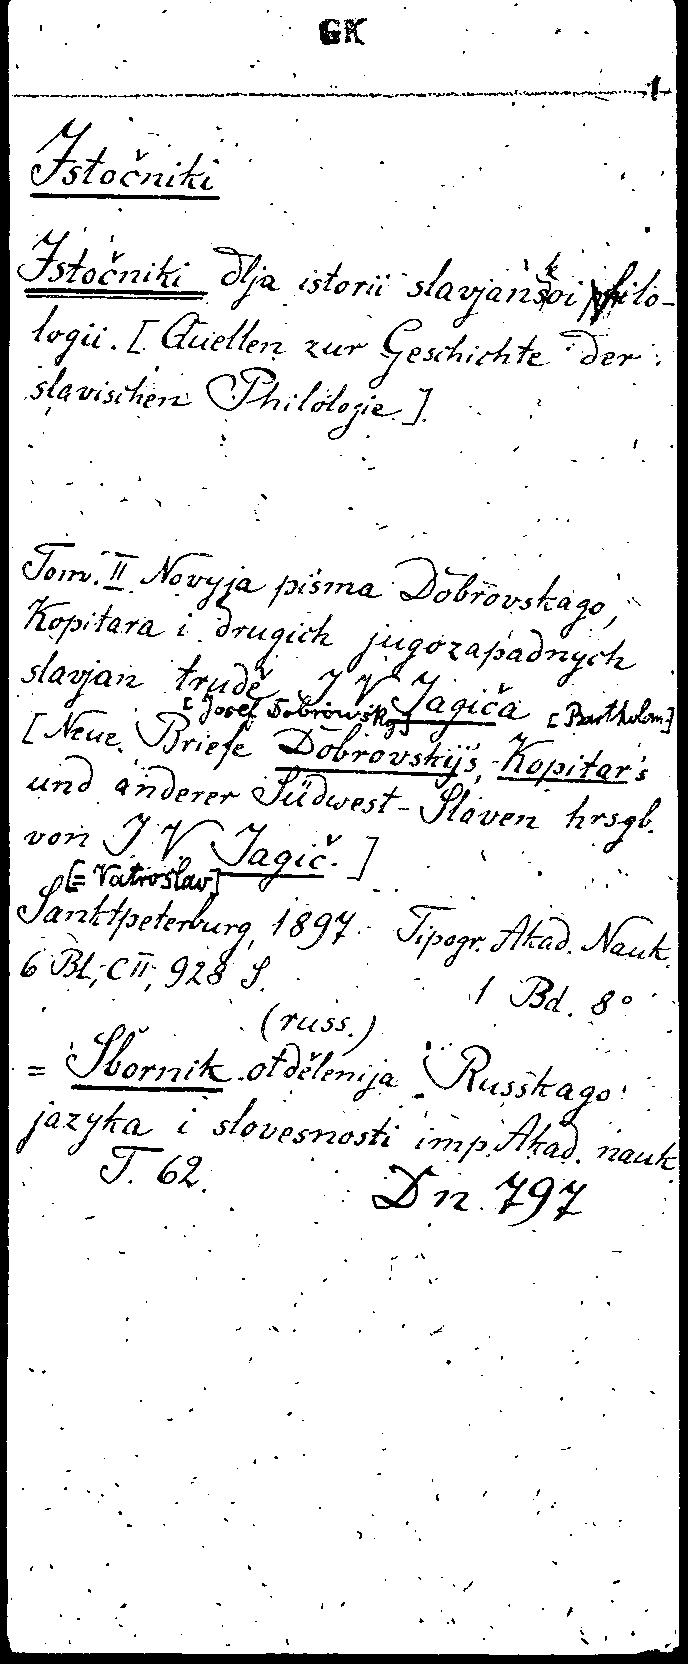 GK
1
Istočniki
Istočniki dlja istorii slavjanskoi filo-
logii. [Quellen zur Geschichte der
slavischen Philologie.]
Tom. II Novyja pisma Dobrovskago,
Kopitara i drugich jugozapadnych
slavjan trudě I V Jagiča
[Josef Dobrowsky] [Bartholom]
[Neue Briefe Dobrovskijs, Kopitar's
und anderer Südwest-Slaven hrsgb.
von I V Jagič.]
[= Vatroslav]
Sanktpeterburg, 1897 Tipogr. Akad. Nauk.
6 Bl., CII, 928 S. 1 Bd. 8°
(russ.)
= Sbornik otdělenija Russkago
jazyka i slovesnosti imp. Akad. nauk
T. 62. Dn 797